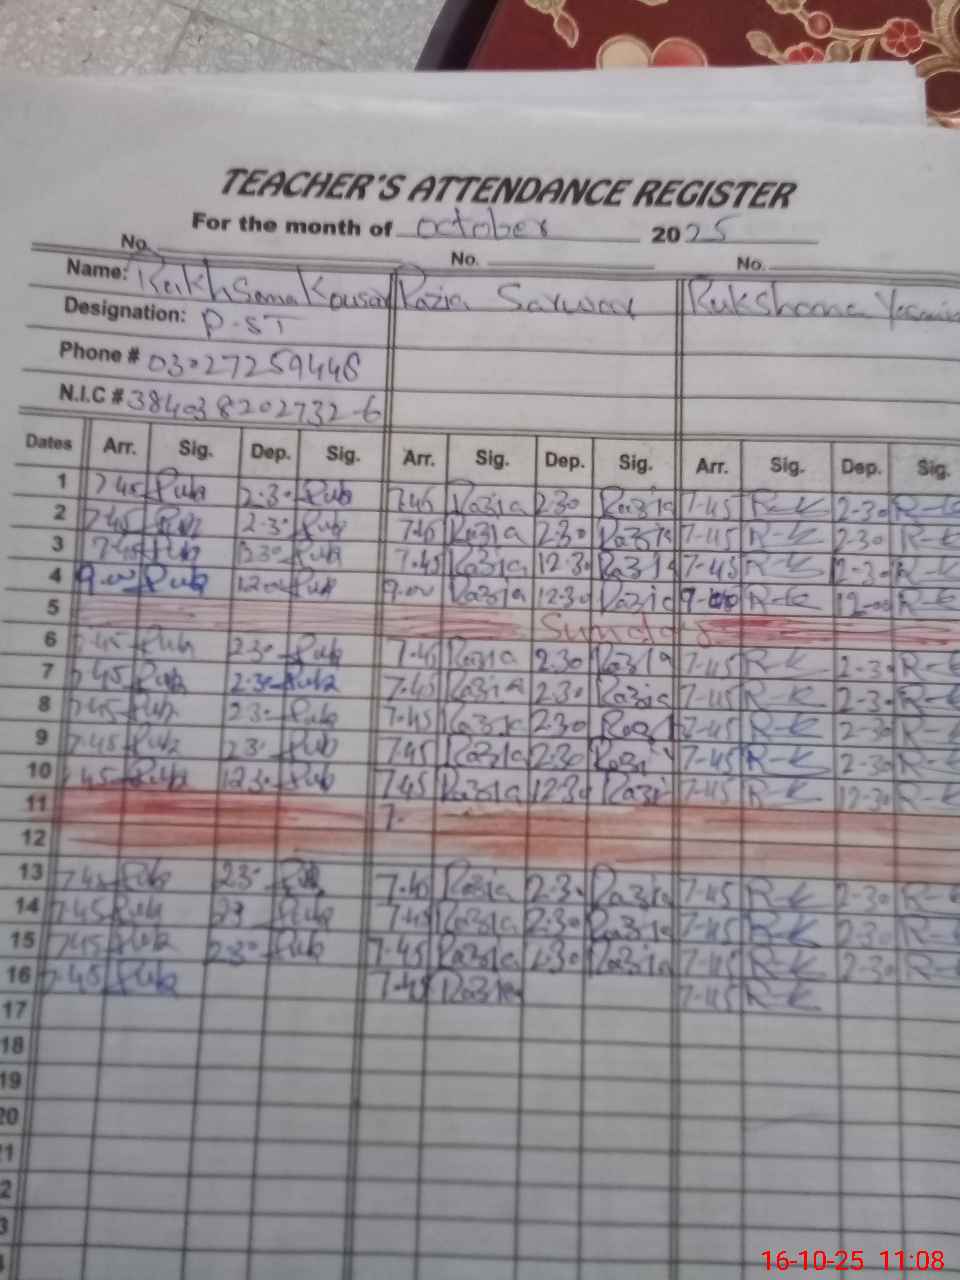 TEACHER'S ATTENDANCE REGISTER
For the month of October 2025
No. No. No.
Name: Kousar Razia Sarwar Rukshana
Designation: P-ST
Phone # 03027259448
N.I.C # 384038202732-6
Dates Arr. Sig. Dep. Sig. Arr. Sig. Dep. Sig. Arr. Sig. Dep. Sig.
1 7.45 Rub 2.30 Rub 7.45 Razia 2.30 Razia 7-45 R-K 2-30 R-K
2 7.45 Rub 2.30 Rub 7.45 Razia 2.30 Razia 7-45 R-K 2.30 R-K
3 7.45 Rub Rub 7.45 Razia 12.30 Razia 7-45 R-K R-K
4 9.00 Rub 12.00 Rub 9.00 Razia 12.30 Razia 9-00 R-K 12-00 R-K
5 Sunday
6 7.45 Rub 2.30 Rub 7.45 Razia 2.30 Razia 7-45 R-K 2-30 R-K
7 7.45 Rub 2.30 Rub 7.45 Razia 2.30 Razia 7-45 R-K 2-30 R-K
8 7.45 Rub 2.30 Rub 7.45 Razia 2.30 7-45 R-K 2-30 R-K
9 7.45 Rub 2.30 Rub 7.45 Razia 2.30 7-45 R-K 2-30 R-K
10 7.45 Rub 12.30 Rub 7.45 Razia 12.30 7-45 R-K 12-30 R-K
11 7.
12
13 7.45 Rub 2.30 7.45 Razia 2.30 Razia 7-45 R-K 2-30 R-K
14 7.45 Rub Rub 7.45 Razia 2.30 Razia 7-45 R-K 2-30 R-K
15 7.45 Rub 2.30 Rub 7.45 Razia 2.30 Razia 7-45 R-K 2-30 R-K
16 7.45 Rub 7.45 Razia 7-45 R-K
17
18
19
20
16-10-25 11:08